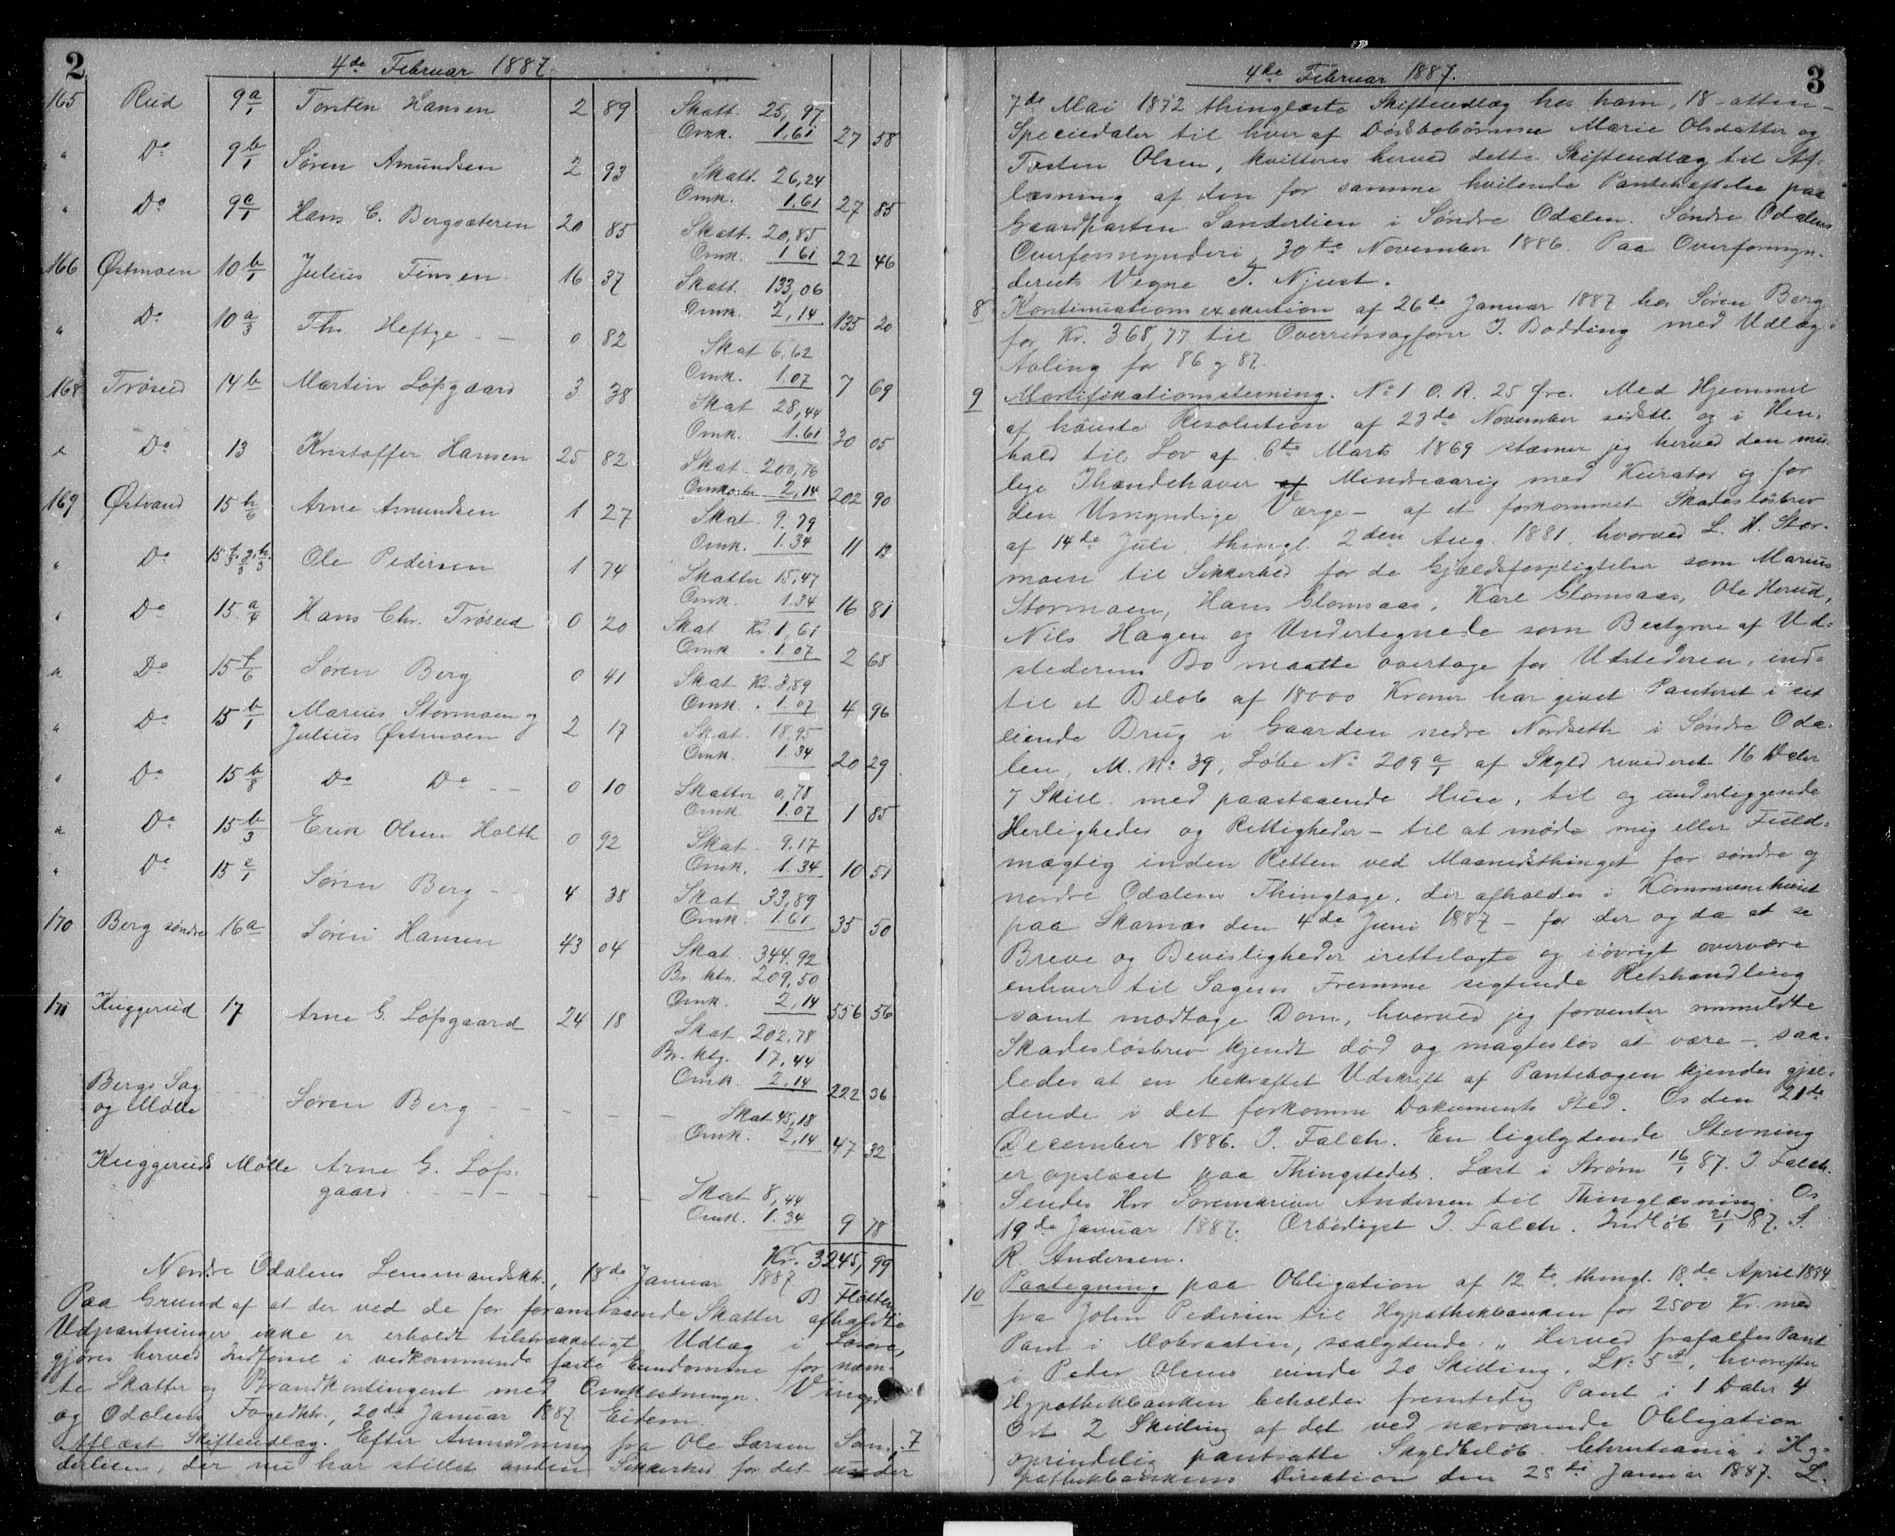 2
4de Februar 1887.
165 Rud 9 a/1 Torsten Hansen 2 89 Skatt. 25,97
Omk. 1,61 27 58
" Do 9 b/1 Søren Amundsen 2 93 Skatt. 26,24
Omk. 1.61 27 85
" Do 9 c/1 Hans C. Bergsæteren 20 85 Skatt. 20,85
Omk. 1 61 22 46
166 Østmoen 10 b/1 Julius Finsen 16 37 Skatt. 133,06
Omk. 2,14 135 20
" Do 10 a/3 Th. Heftye - - 0 82 Skat 6,62
Omk. 1.07 7 69
168 Trøseid 14 b Martin Løfsgaard 3 38 Skat 28,44
Omk. 1.61 30 05
" Do 13 Kristoffer Hansen 25 82 Skat 200,76
Omkoster 2,14 202 90
169 Østvand 15 h/6 Arne Amundsen 1 27 Skat. 9.79
Omk. 1.34 11 13
" Do Ole Pedersen 1 74 Skatter 15,47
Omk. 1.34 16 81
" Do 15 a/4 Hans Chr. Trøseid 0 20 Skat Kr. 1,61
Omk. " 1.07 2 68
" Do 15 f/6 Søren Berg 0 41 Skat Kr. 3,89
Omk. " 1.07 4 96
" Do 15 b/1 Marius Stormoen og
Julius Østmoen 2 17 Skat. 18,95
Omk. 1.34 20 29
" Do 15 b/8 Do Do - - 0 10 Skatter 0,78
Omk. 1.07 1 85
" Do 15 b/3 Erik Olsen Holth 0 92 Skat. 9.17
Omk. 1.34 10 51
" Do 15 e/1 Søren Berg - - 4 38 Skat 33,89
Omk. 1.61 35 50
170 Berg søndre 16 a Søren Hansen 43 04 Skat. 344.92
Br. ktg. 209,50
Omk. 2,14 556 56
171 Kuggerud 17 Arne G. Løfsgaard 24 18 Skat 202,78
Br. ktg. 17,44
Omk. 2,14 222 36
Bergs Sag
og Mølle Søren Berg - - - - Skat 45,18
Omk. 2,14 47 32
Kuggeruds Mølle Arne G. Løfs-
gaard - - - - Skat 8,44
Omk. 1.34 9 78
Kr. 3245,99
Nordre Odalens Lensmandsktr., 18de Januar 1887
B Fløtten
Paa Grund af at der ved de for foranstaaende Skatter afholdte
Udpantninger ikke er erholdt tilstrækkeligt Udlæg i Løsøre,
gjøres herved Indførsel i vedkommende faste Eiendomme for nævn-
te Skatter og Brandkontingent med Omkostninger. Vinger
og Odalens Fogedktr., 20de Januar 1887. Eidem.
Aflæst Skifteudlæg. Efter Anmodning fra Ole Larsen San- 7
derlien, der nu har stillet anden Sikkerhed for det under
3
4de Februar 1887.
7de Mai 1872 thinglæste Skifteudlæg hos ham, 18 - atten -
Speciedaler til hver af Dødsbobørnene Marie Olsdatter og
Torsten Olsen, kvitteres herved dette Skifteudlæg til Af-
læsning af den for samme hvilende Panteheftelse paa
Gaardparten Sanderlien i Søndre Odalen. Søndre Odalens
Overformynderi, 30te November 1886. Paa Overformyn-
deriets Vegne T. Njust.
8 Kontinuationsexekution af 26de Januar 1887 hos Søren Berg
for Kr. 368,77 til Overretssagfører J. Bødding med Udlæg i
Avling for 86 og 87.
9 Mortifikationsstevning. No 1 O. R. 25 Øre. Med Hjemmel
af høieste Resolution af 23de November sidstl. og i Hen-
hold til Lov af 6te Marts 1869 stævner jeg herved den mu-
lige Ihændehaver af Mindreaarig med Kurator og for
den Umyndige Værge - af et forkommet Skadesløsbrev
af 14de Juli, thingl. 2den Aug. 1881, hvorved L. H. Stor-
moen til Sikkerhed for de Gjældsforpligtelser som Marius
Stormoen, Hans Glomsaas, Karl Glomsaas, Ole Herud,
Nils Hagen og Undertegnede som Bestyrere af Ud-
stederens Bo maatte overtage for Udstederen, ind-
til et Beløb af 18000 Kroner har givet Panteret i sit
eiende Brug i Gaarden nedre Nordseth i Søndre Oda-
len, M. No 39, Løbe No 209 a/1 af Skyld revideret 16 Daler
7 Skill. med paastaaende Huse, til og underliggende
Herligheder og Rettigheder - til at møde mig eller Fuld-
mægtig inden Retten ved Maanedsthinget for søndre og
nordre Odalens Thinglage, der afholdes i Kommunehuset
paa Skarnæs den 4de Juni 1887 - for der og da at se
Breve og Bevisligheder irettelagte og iøvrigt overvære
enhver til Sagens Fremme sigtende Retshandling
samt modtage Dom, hvorved jeg forventer ommeldte
Skadesløsbrev kjendt død og magtesløs at være -, saa-
ledes at en bekræftet Udskrift af Pantebogen kjendes gjæl-
dende i det forkomne Dokuments Sted. Os den 21de
December 1886. J. Falch. En ligelydende Stevning
er opslaaet paa Thingstedet. Læst i Strøm 16/1 87. J. Falch.
Sendes Hr. Sorenskriver Andersen til Thinglæsning. Os
19de Januar 1887. Ærbødigst J. Falch. Indløb 21/1 87. S.
R. Andersen.
10 Paategning paa Obligation af 12te, thingl. 18de April 1884
fra John Pedersen til Hypothekbanken for 2500 Kr. med
Pant i Mobraaten, saalydende: " Herved frafaldes Pant
i Peder Olsens eiende 20 Skilling, L No 5 a, hvorefter
Hypothekbanken beholder fremtidig Pant i 1 Daler 4
Ort 2 Skilling af det ved nærværende Obligation
oprindelig pantsatte Skyldbeløb. Christiania i Hy-
pothekbankens Direktion den 25de Januar 1887. L.